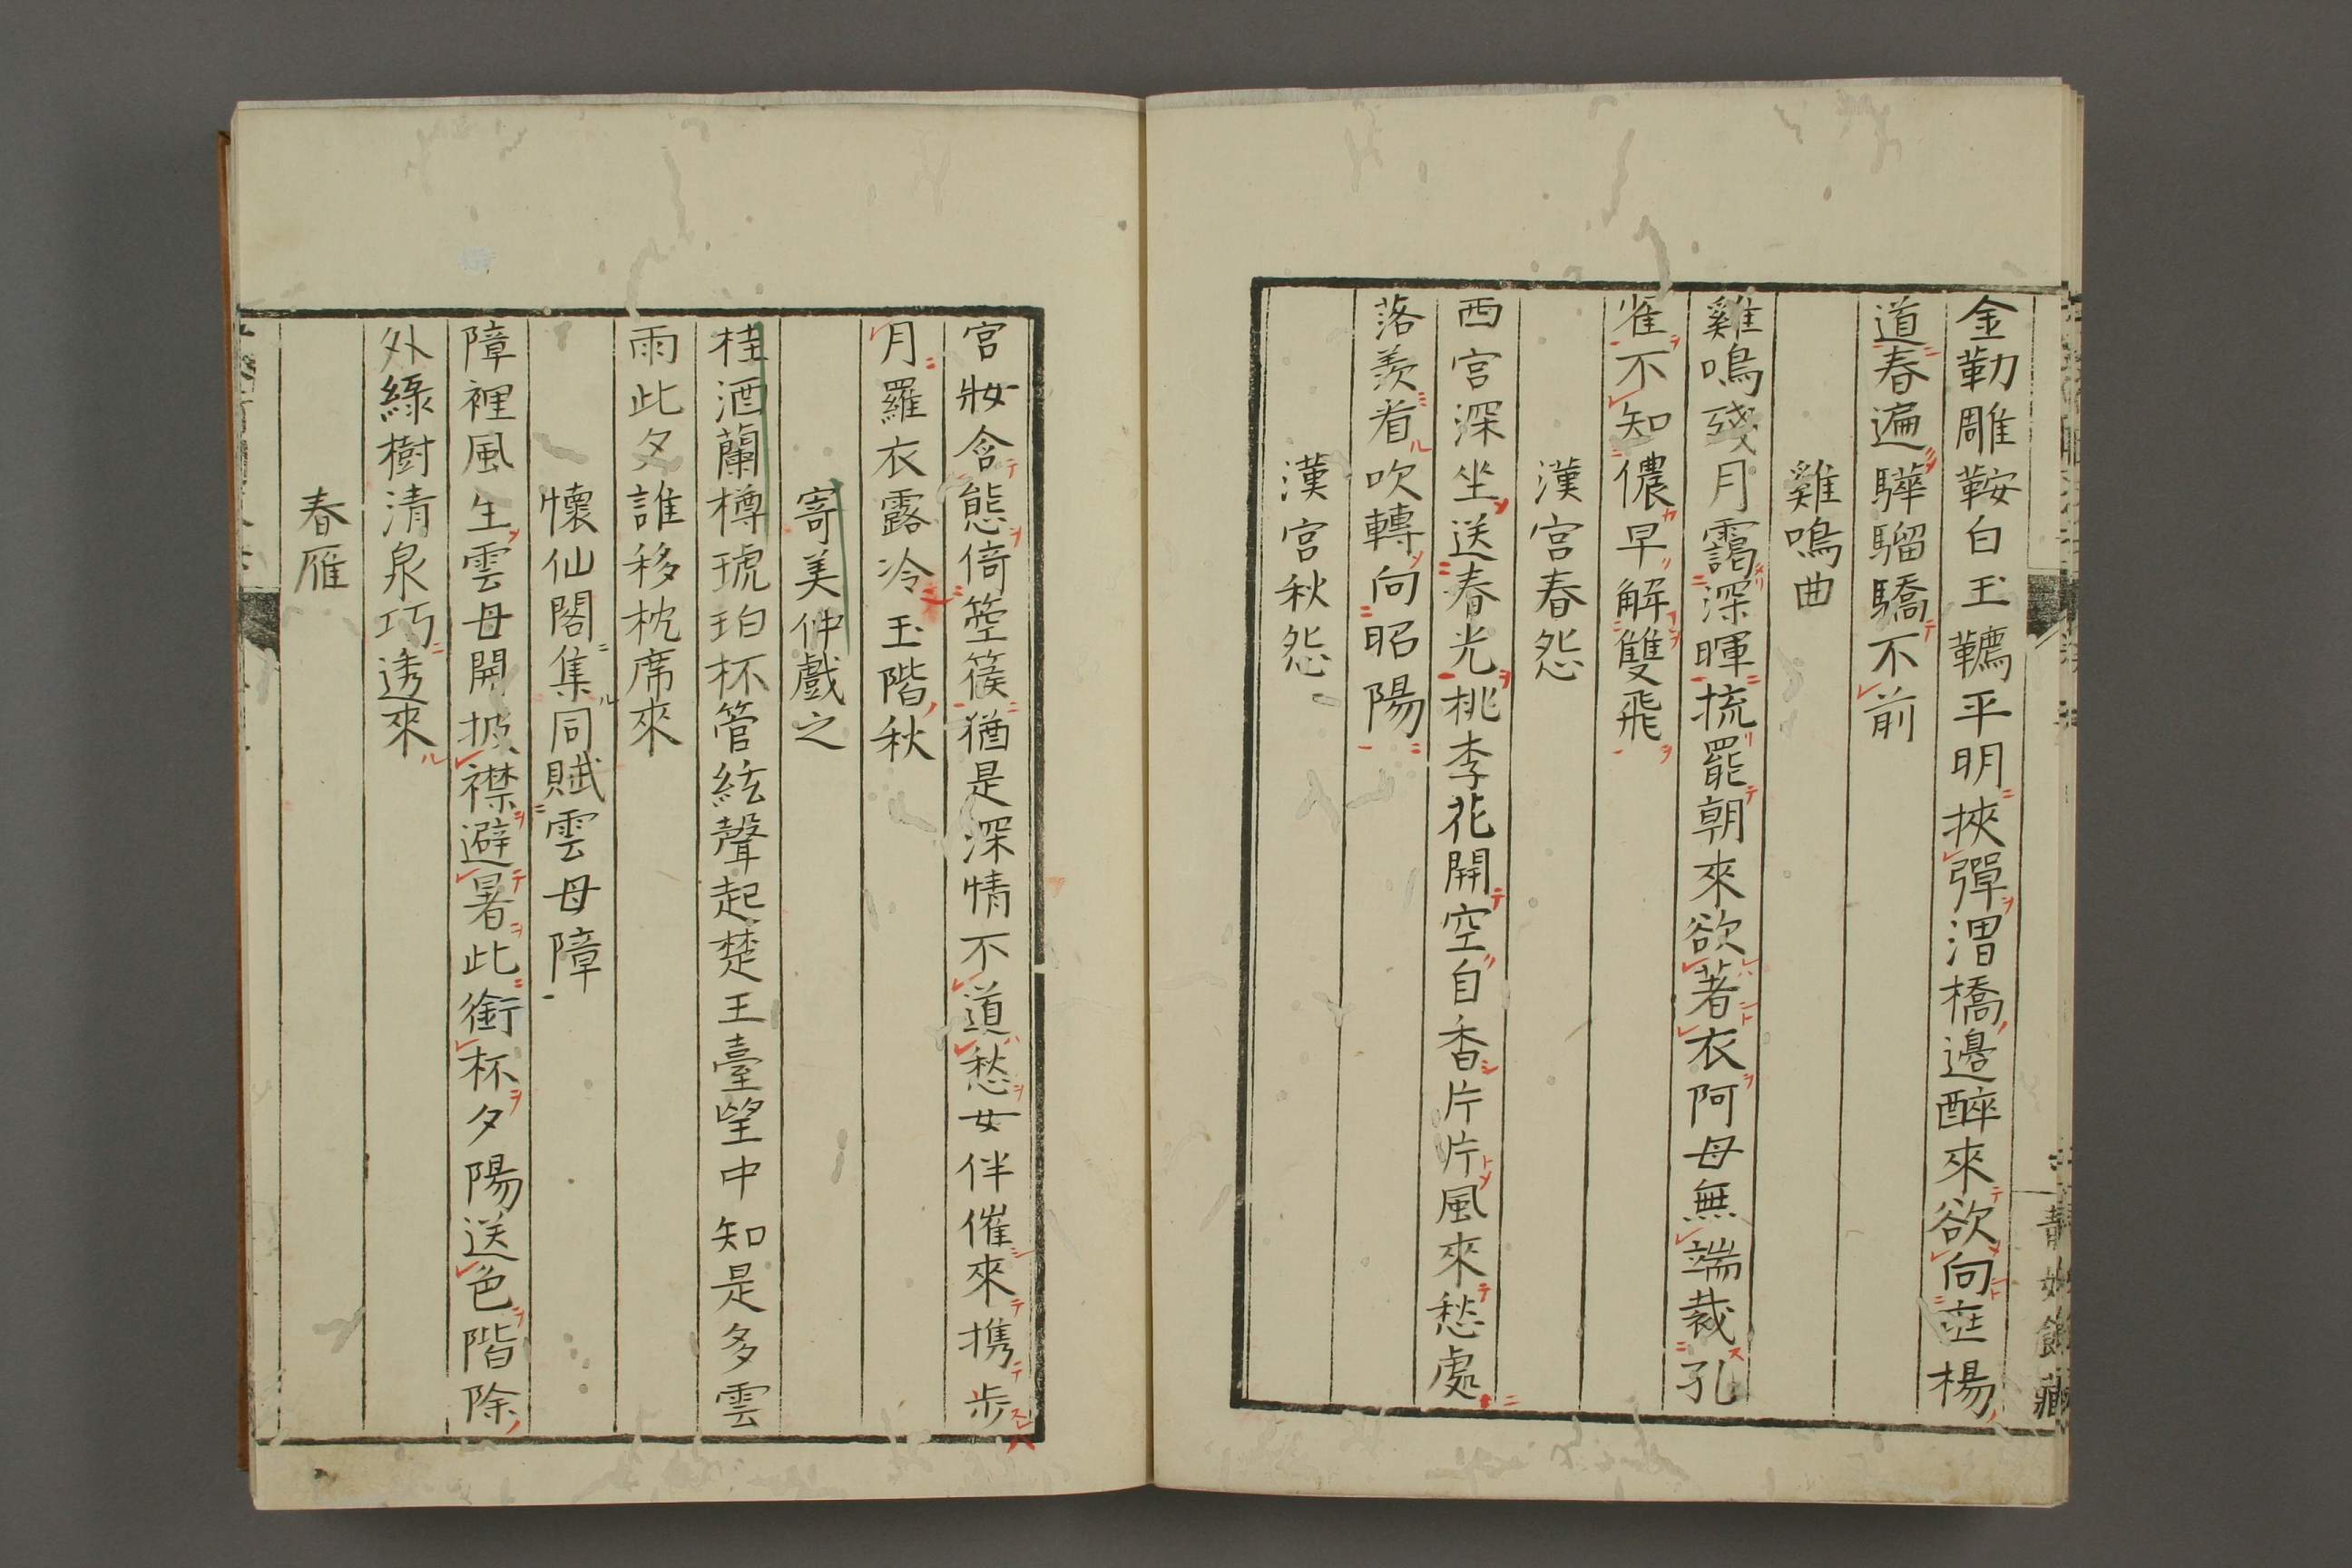 金勒雕鞍白玉韉平明挾彈渭橋邊醉來欲向垂楊
道春遍驊騮驕不前
雞鳴曲
雞鳴殘月靄深暉梳罷朝來欲著衣阿母無端裁孔
雀不知儂早解雙飛
漢宮春怨
西宮深坐送春光桃李花開空自香片片風來愁處
落羨看吹轉向昭陽
漢宮秋怨
宮妝含態倚箜篌猶是深情不道愁女伴催來携步
月羅衣露冷玉階秋
寄美仲戲之
桂酒蘭樽琥珀杯管絃聲起楚王臺望中知是多雲
雨此夕誰移枕席來
懷仙閣集同賦雲母障
障裡風生雲母開披襟避暑此銜杯夕陽送色階除
外綠樹清泉巧透來
春雁